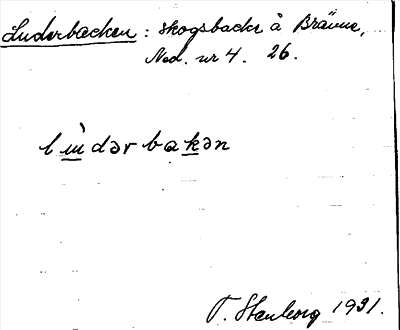 Luderbacken : skogsbacke å Bränne,
Ned. nr 4. 26.
lùdərbakən
T. Stenborg 1931.